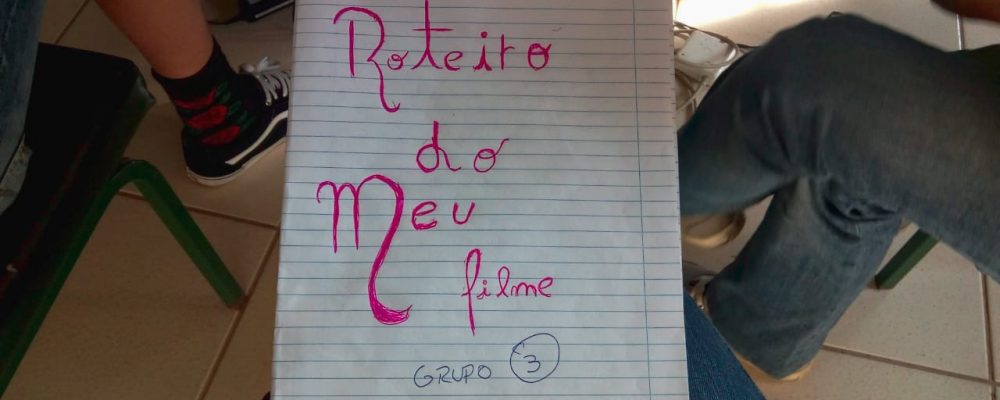 Roteiro
do
Meu
filme
GRUPO 3